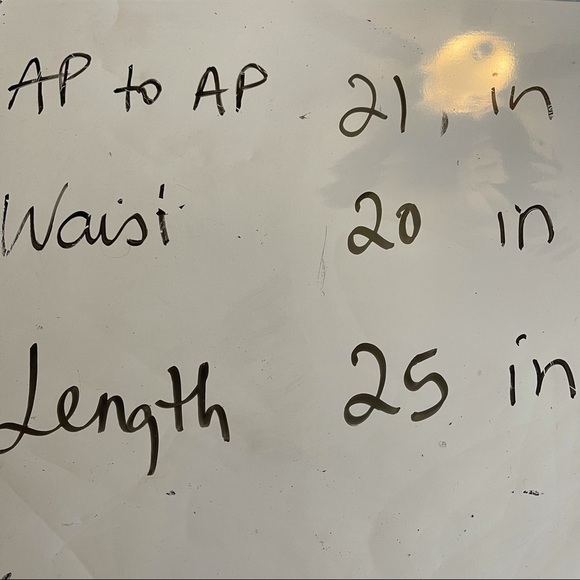 AP to AP 21, in
Waist 20 in
Length 25 in